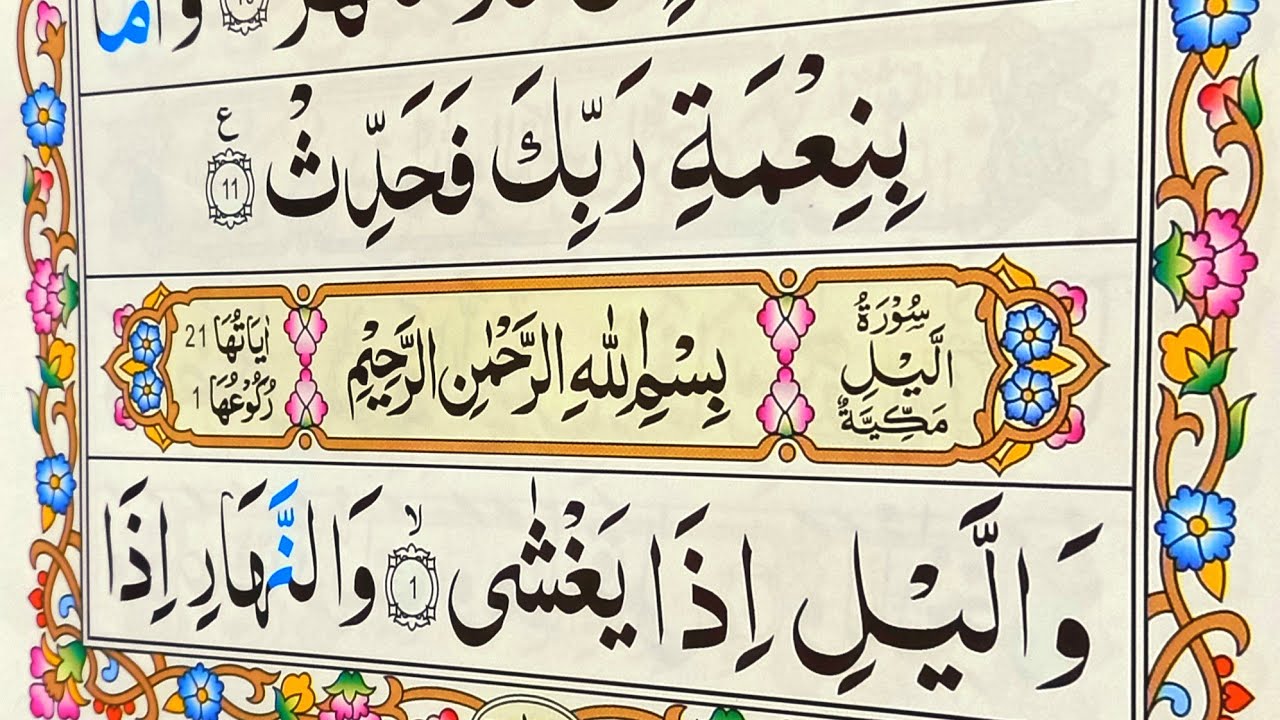 وَاَمَّا
بِنِعْمَةِ رَبِّكَ فَحَدِّثْ ع 11
سُوْرَةُ الَّيْلِ مَكِّيَّةٌ
بِسْمِ اللّٰهِ الرَّحْمٰنِ الرَّحِيْمِ
اٰيَاتُهَا 21
رُكُوْعُهَا 1
وَالَّيْلِ اِذَا يَغْشٰى ۙ 1 وَالنَّهَارِ اِذَا